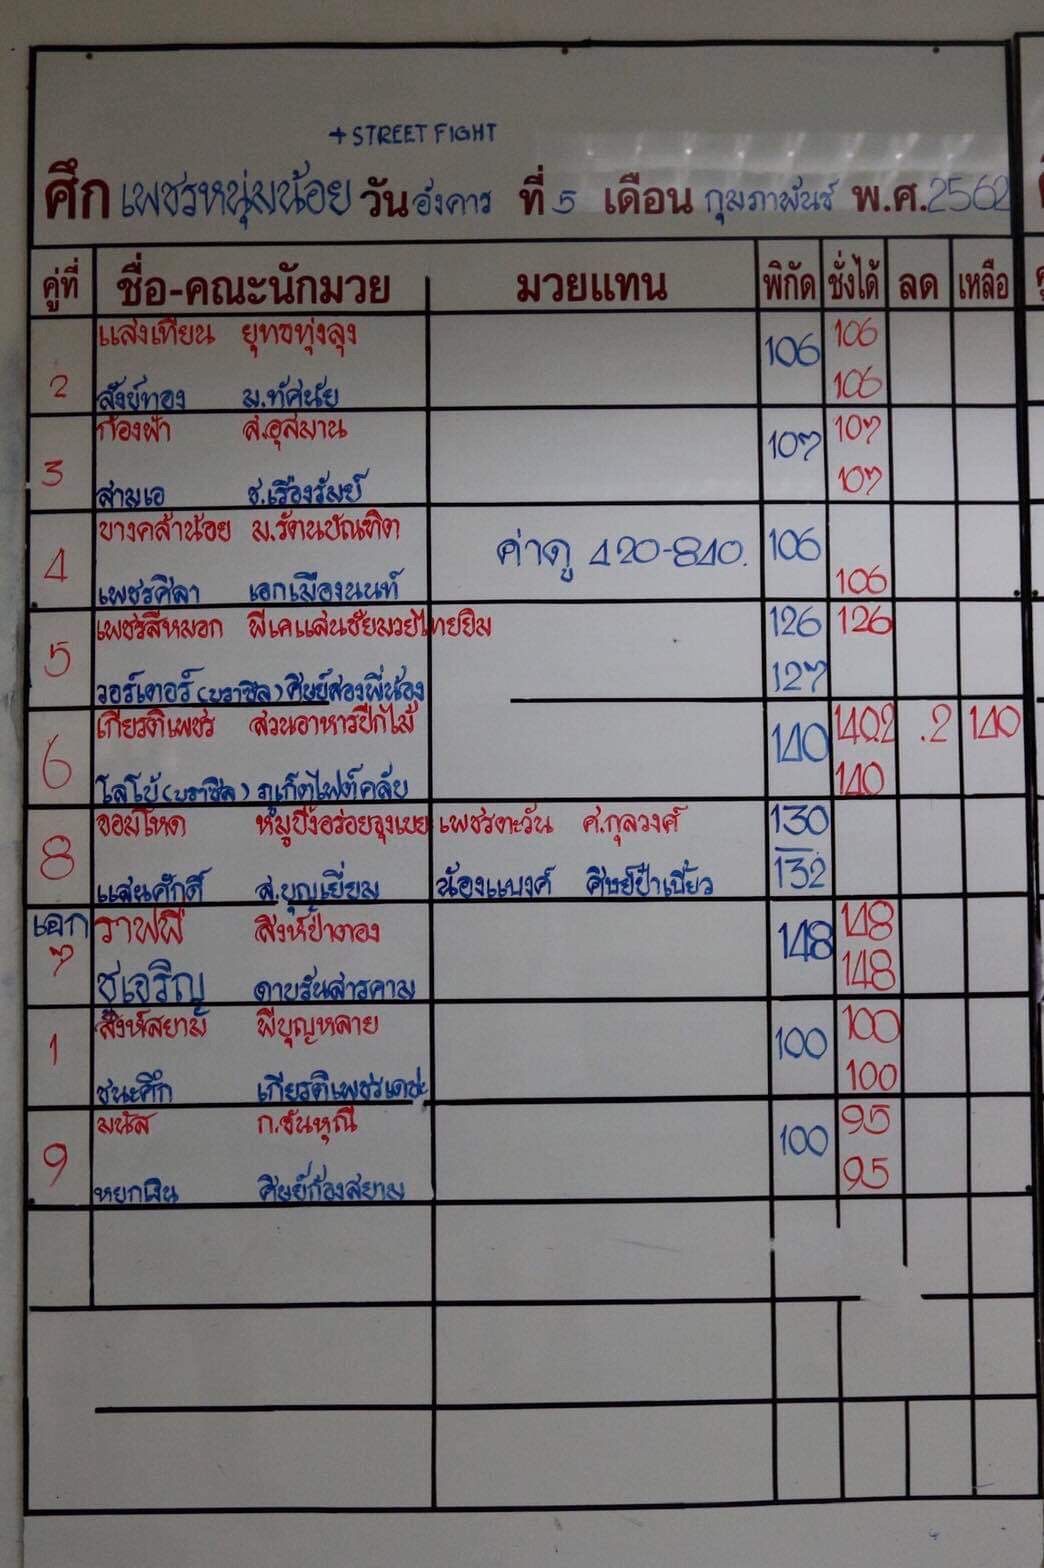 + STREET FIGHT
ศึก เพชรหนุ่มน้อย วัน อังคาร ที่ 5 เดือน กุมภาพันธ์ พ.ศ. 2562
คู่ที่ ชื่อ-คณะนักมวย มวยแทน พิกัด ชั่งได้ ลด เหลือ
แสงเทียน ยุทธทุ่งลุง 106 106
2 สังข์ทอง ม.ทัศนัย 106
ก้องฟ้า ส.อุสมาน 107 107
3 สามเอ ช.เรืองรัมย์ 107
บางคล้าน้อย ม.รัตนบัณฑิต 106
4 ค่าตู 420-840.
เพชรศิลา เอกเมืองนนท์ 106
เพชรสีหมอก พีเคแสนชัยมวยไทยยิม 126 126
5 วอร์เตอร์ (บราซิล) ศิษย์สองพี่น้อง 127
เกียรติเพชร สวนอาหารปีกไม้ 140 140.2 .2 140
6 โลโบ้ (บราซิล) ภูเก็ตไฟต์คลับ 140
จอมโหด หมูปิ้งอร่อยจุงเบย เพชรตะวัน ศ.กุลวงศ์ 130
8 แสนศักดิ์ ส.บุญเยี่ยม น้องแบงค์ ศิษย์ป๋าเบี้ยว 132
เอก ราฟฟี่ สิงห์ป่าตอง 148 148
7 ชูเจริญ ดาบรันสารคาม 148
สิงห์สยาม พีบุญหลาย 100 100
1 ชนะศึก เกียรติเพชรเดชะ 100
มนัส ก.ขันทุณี 100 95
9 หยกเงิน ศิษย์ก้องสยาม 95